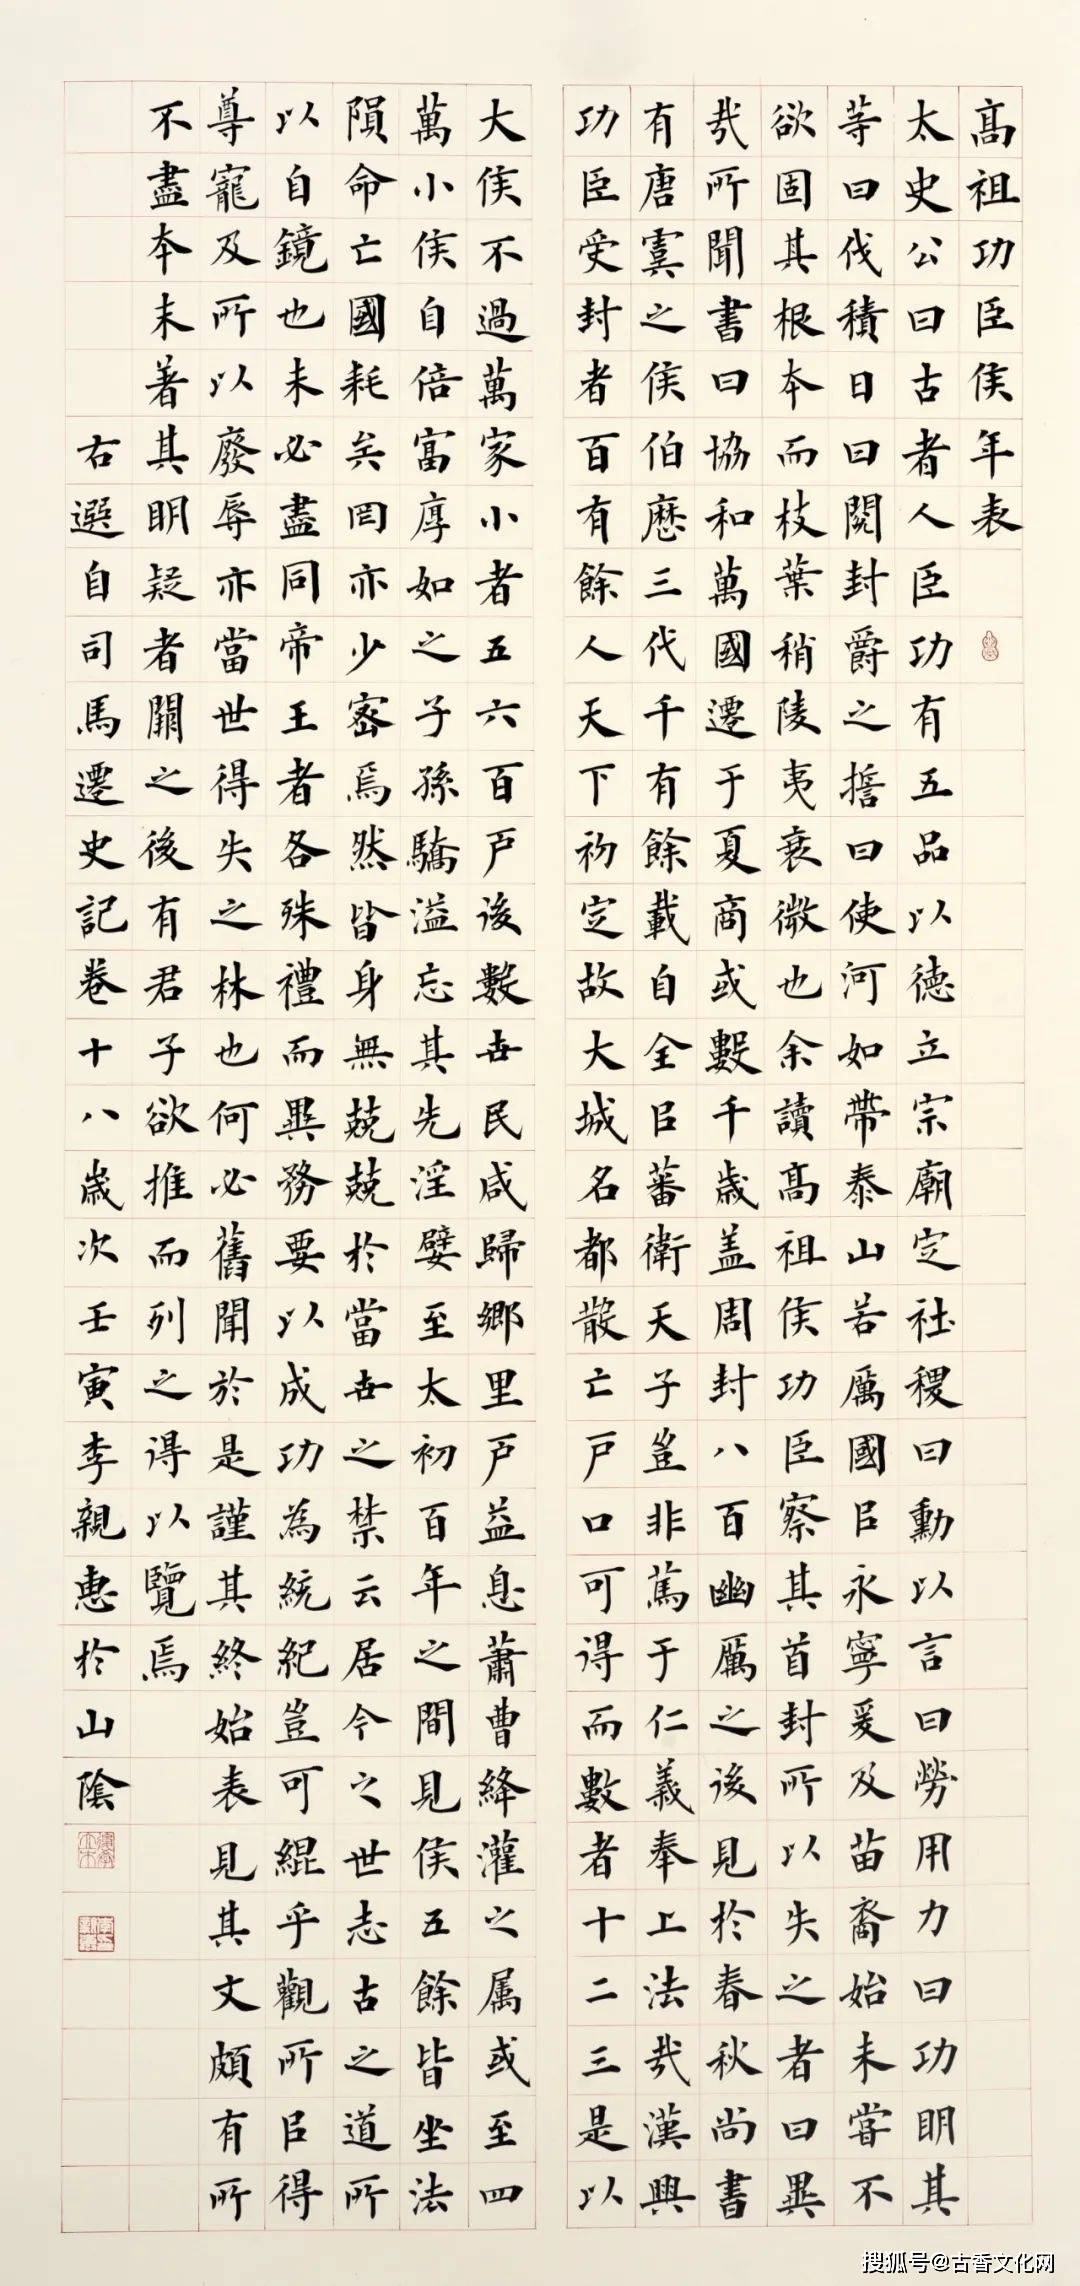 高祖功臣侯年表
太史公曰古者人臣功有五品以德立宗廟定社稷曰勳以言曰勞用力曰功明其
等曰伐積日曰閱封爵之誓曰使河如帶泰山若厲國以永寧爰及苗裔始未嘗不
欲固其根本而枝葉稍陵夷衰微也余讀高祖侯功臣察其首封所以失之者曰異
哉所聞書曰協和萬國遷于夏商或數千歲蓋周封八百幽厲之後見於春秋尚書
有唐虞之侯伯歷三代千有餘載自全以蕃衛天子豈非篤于仁義奉上法哉漢興
功臣受封者百有餘人天下初定故大城名都散亡戶口可得而數者十二三是以
大侯不過萬家小者五六百戶後數世民咸歸鄉里戶益息蕭曹絳灌之属或至四
萬小侯自倍富厚如之子孫驕溢忘其先淫嬖至太初百年之間見侯五餘皆坐法
隕命亡國耗矣罔亦少密焉然皆身無兢兢於當世之禁云居今之世志古之道所
以自鏡也未必盡同帝王者各殊禮而異務要以成功為統紀豈可緄乎觀所以得
尊寵及所以廢辱亦當世得失之林也何必舊聞於是謹其終始表見其文頗有所
不盡本末著其明疑者闕之後有君子欲推而列之得以覽焉
右選自司馬遷史記卷十八歲次壬寅李親惠於山陰
搜狐号@古香文化网